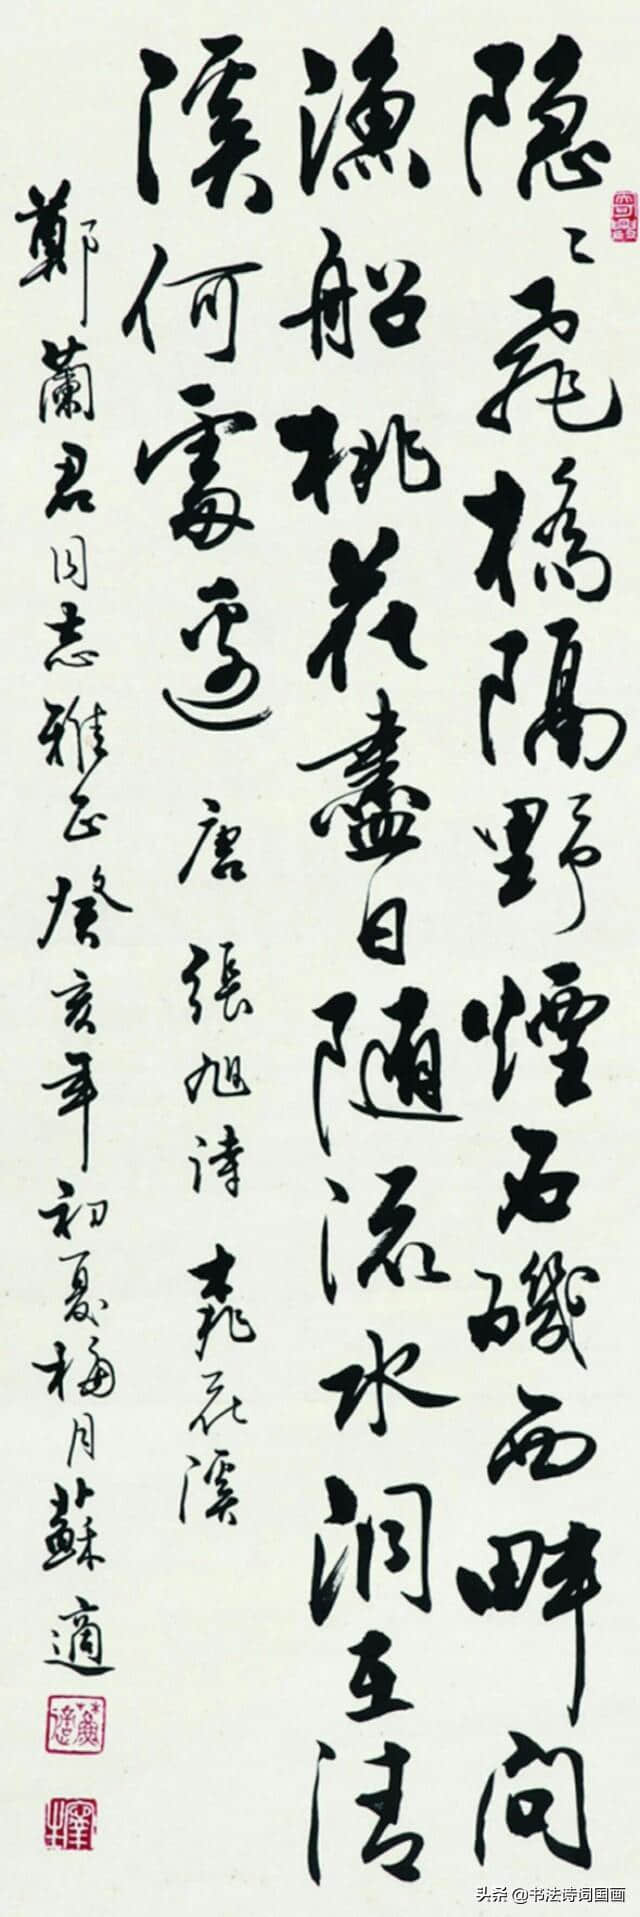 隐〻飛橋隔野煙石磯西畔問
漁船桃花盡日随流水洞在清
溪何處邊 唐 張旭詩 桃花溪
鄭蘭君同志雅正癸亥年初夏梅月蘇適
头条 @书法诗词国画